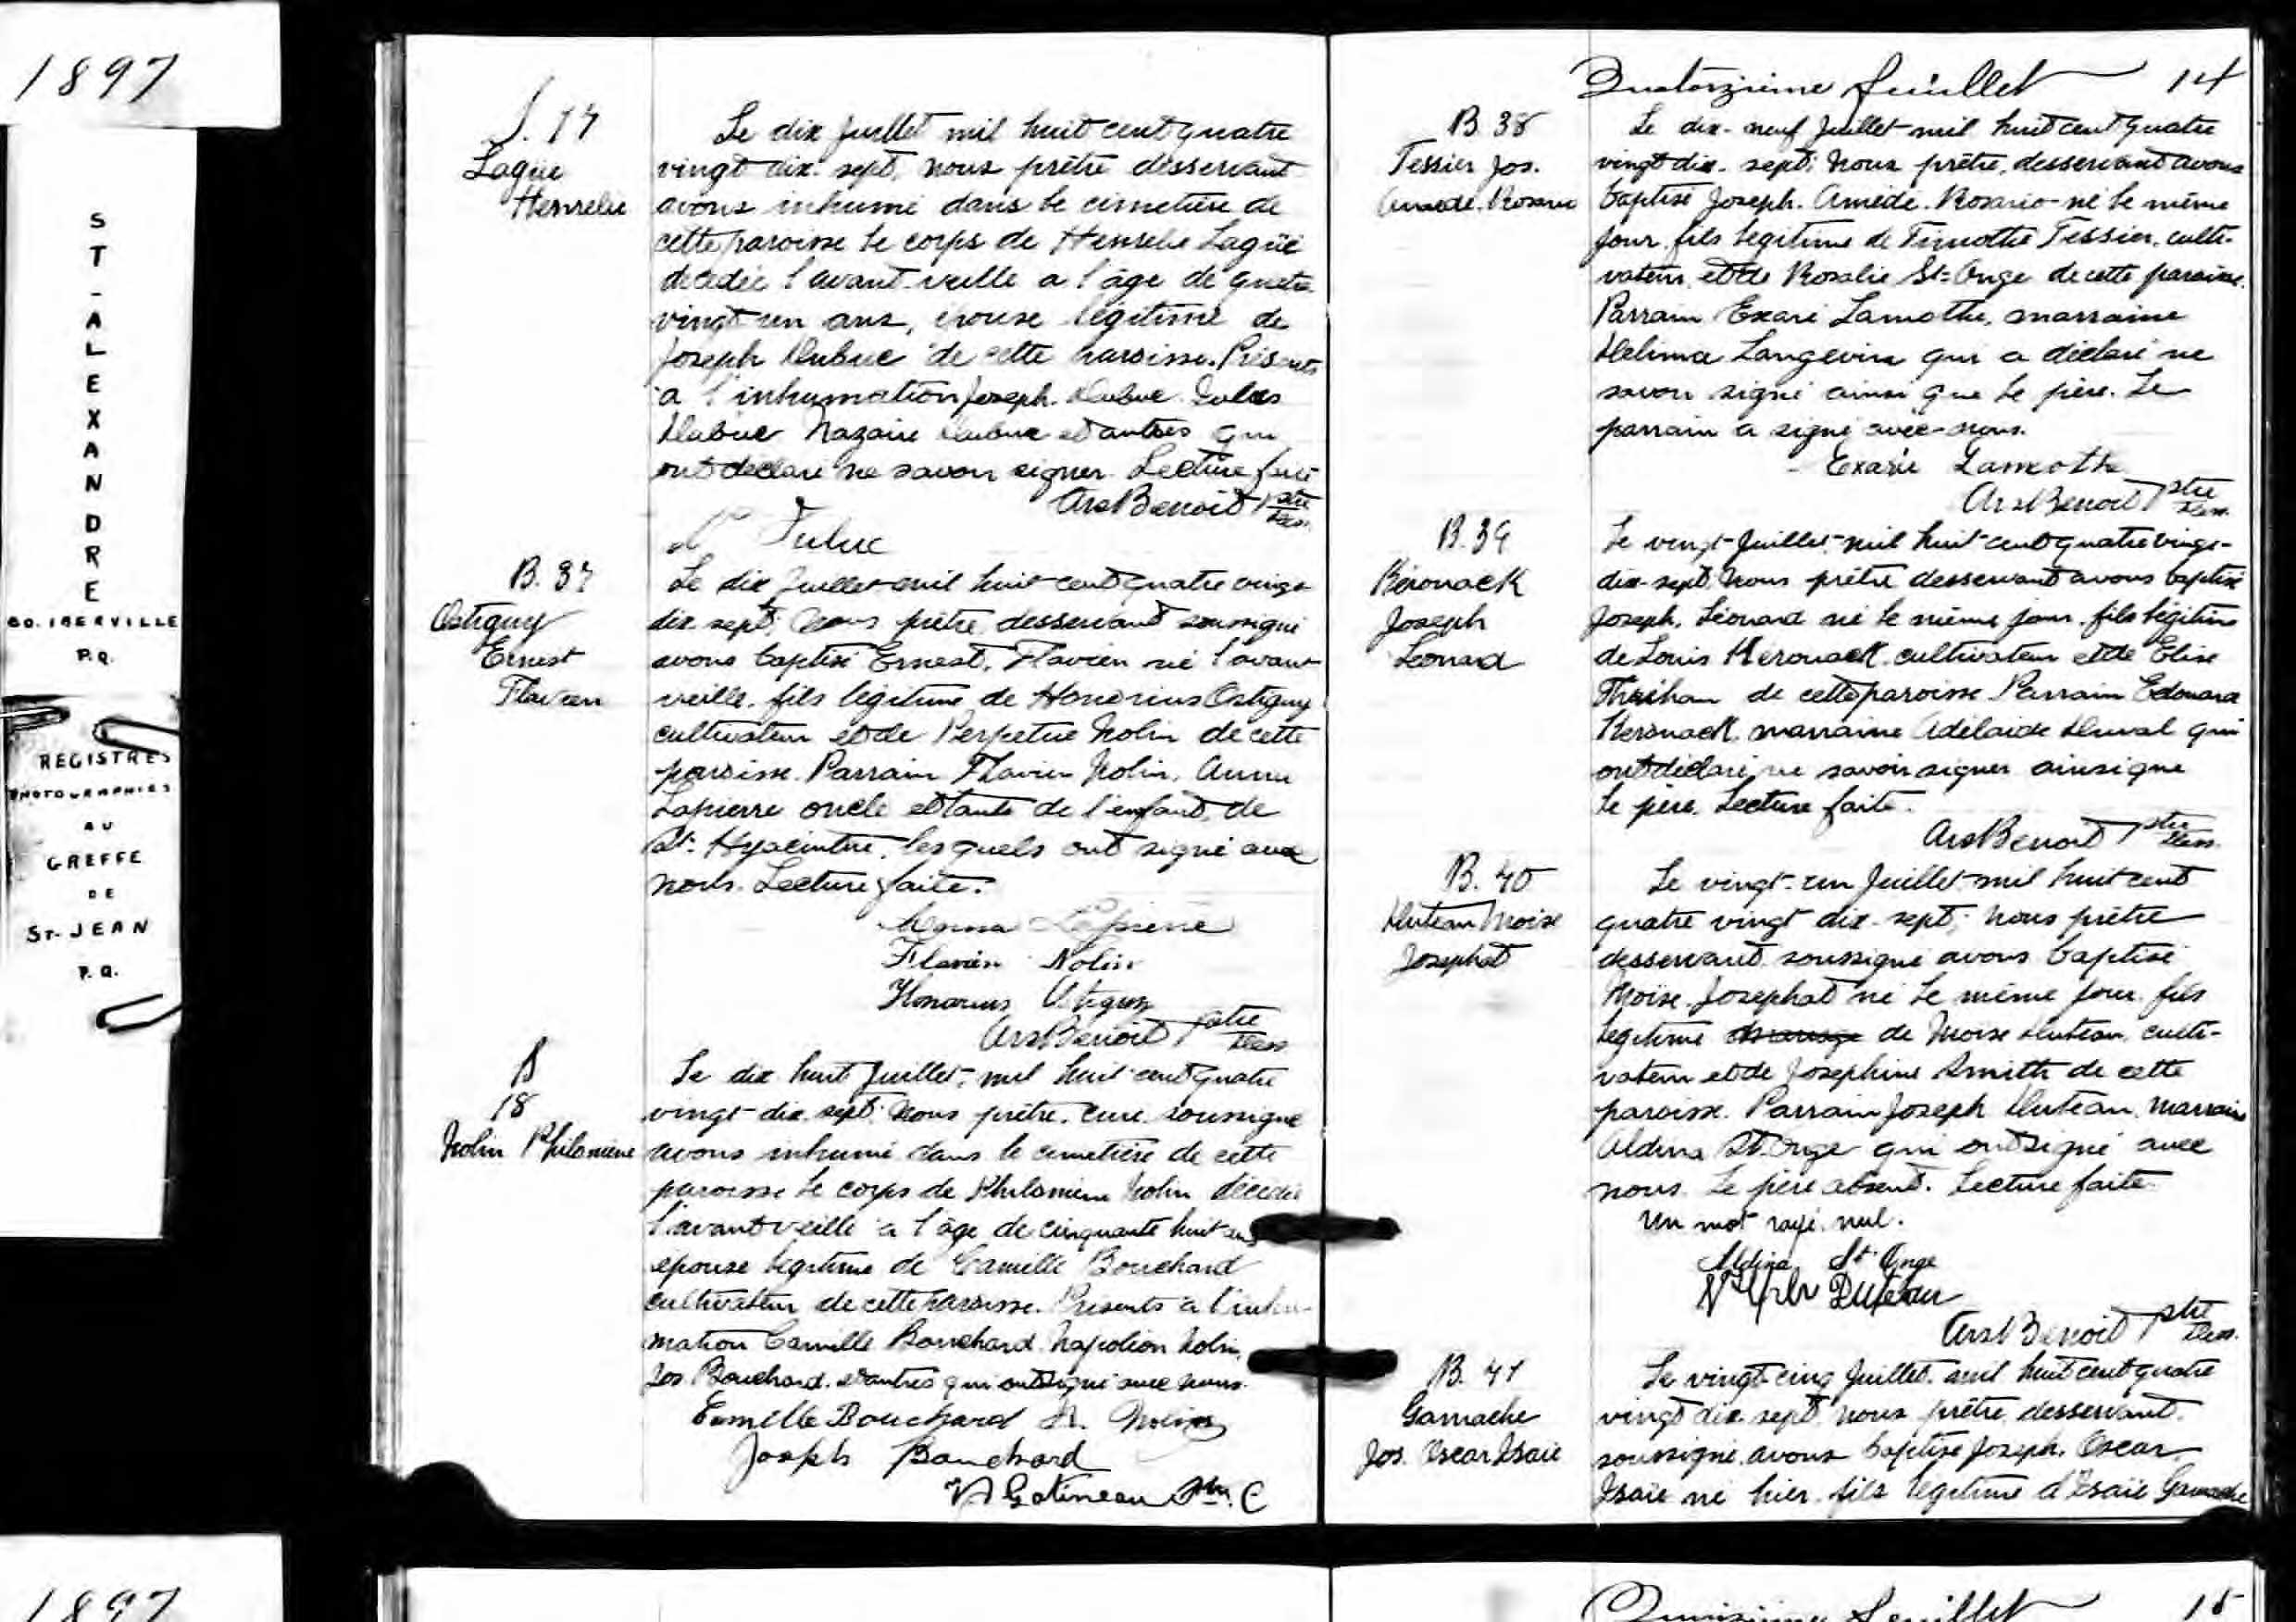 1897
ST-ALEXANDRE
CO. IBERVILLE
P.Q.
REGISTRES
PHOTOGRAPHIES
AU
GREFFE
DE
ST-JEAN
P.Q.
1897
S. 17
Lagüe
Henrelie
Le dix Juillet mil huit cent quatre
vingt dix-sept, nous prêtre desservant
avons inhumé dans le cimetière de
cette paroisse le corps de Henrelie Lagüe
décédée l'avant-veille a l'âge de quatre
vingt un ans, épouse légitime de
Joseph Dubuc de cette paroisse. Présents
a l'inhumation Joseph Dubuc Jules
Dubuc Nazaire Dubuc et autres qui
ont déclaré ne savoir signer. Lecture faite
Ars Benoit Ptre
Dess.
Dubuc
B. 37
Ostiguy
Ernest
Flavien
Le dix Juillet mil huit cent quatre vingt
dix-sept; Nous prêtre desservant soussigné
avons baptisé Ernest, Flavien né l'avant
veille, fils légitime de Honorius Ostiguy
cultivateur et de Perpetue Nolin de cette
paroisse. Parrain Flavien Nolin, Anna
Lapierre oncle et tante de l'enfant, de
St. Hyacinthe, lesquels ont signé avec
nous. Lecture faite.
Anna Lapierre
Flavien Nolin
Honorius Ostiguy
Ars Benoit Ptre
Dess
S
18
Nolin Philomène
Le dix huit Juillet, mil huit cent quatre
vingt-dix sept. Nous prêtre, curé, soussigné
avons inhumé dans le cimetière de cette
paroisse le corps de Philomène Nolin décédée
l'avant veille a l'âge de cinquante huit ans
épouse légitime de Camille Bouchard
cultivateur de cette paroisse. Présents a l'inhu-
mation Camille Bouchard Napoléon Nolin,
Jos. Bouchard. et autres qui ont signé avec nous.
Camille Bouchard N. Nolin
Joseph Bouchard
Gatineau Ptre. C
Quatorzième feuillet 14
B 38
Tessier Jos.
Amédé. Rosario
Le dix-neuf Juillet mil huit cent quatre
vingt dix-sept; Nous prêtre, desservant avons
baptisé Joseph. Amédé. Rosario né le même
jour, fils légitime de Timothé Tessier, culti-
vateur et de Rosalie St-Onge de cette paroisse.
Parrain Exarie Lamothe, marraine
Delima Langevin qui a déclaré ne
savoir signé ainsi que le père. Le
parrain a signé avec nous.
Exarie Lamothe
Ars Benoit Ptre
Dess.
B. 39
Kérouack
Joseph
Léonard
Le vingt Juillet mil huit cent quatre vingt-
dix-sept Nous prêtre desservant avons baptisé
Joseph, Léonard né le même jour, fils légitime
de Louis Kérouack cultivateur et de Elise
de cette paroisse Parrain Edouard
Kérouack, marraine Adélaide Duval qui
ont déclaré ne savoir signer ainsi que
le père. Lecture faite.
Ars Benoit Ptre
Dess.
B. 40
Duteau Moise
Josephat
Le vingt-un Juillet mil huit cent
quatre vingt dix-sept; Nous prêtre
desservant soussigné avons baptisé
Moïse. Josephat né le même jour, fils
légitime de Moïse Duteau culti-
vateur et de Josephine Smith de cette
paroisse. Parrain Joseph Duteau, Marraine
Aldina St. Onge qui ont signé avec
nous. Le père absent. Lecture faite.
Un mot rayé nul.
Aldina St Onge
Duteau
Ars Benoit Ptre
Dess.
B. 41
Gamache
Jos. Oscar Isaïe
Le vingt-cinq Juillet mil huit cent quatre
vingt dix-sept nous prêtre desservant
soussigné avons baptisé Joseph. Oscar
Isaïe né hier, fils légitime d'Isaïe Gamache
Quinzième feuillet 15